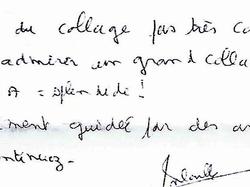 du collage pas très co
admirer un grand colla
A = splendide!
ment guidée par des ar
ontinuez.